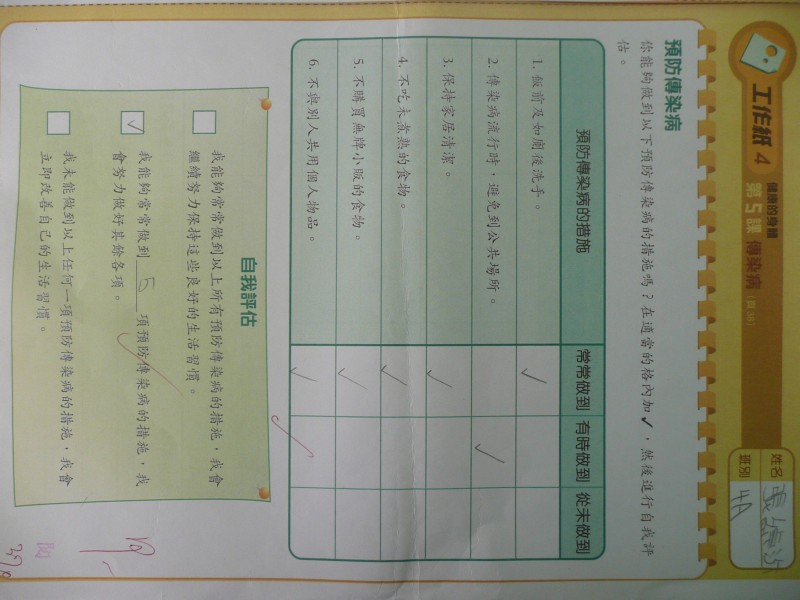 工作紙 4
健康的身體
第 5 課 傳染病 (頁 38)
姓名
班別 4A
預防傳染病
你能夠做到以下預防傳染病的措施嗎?在適當的格內加✓,然後進行自我評
估。
預防傳染病的措施 常常做到 有時做到 從未做到
1. 飯前及如廁後洗手。 ✓
2. 傳染病流行時,避免到公共場所。 ✓
3. 保持家居清潔。 ✓
4. 不吃未煮熟的食物。 ✓
5. 不購買無牌小販的食物。 ✓
6. 不與別人共用個人物品。 ✓
自我評估
我能夠常常做到以上所有預防傳染病的措施,我會
繼續努力保持這些良好的生活習慣。
✓ 我能夠常常做到 5 項預防傳染病的措施,我
會努力做好其餘各項。
我未能做到以上任何一項預防傳染病的措施,我會
立即改善自己的生活習慣。
閱